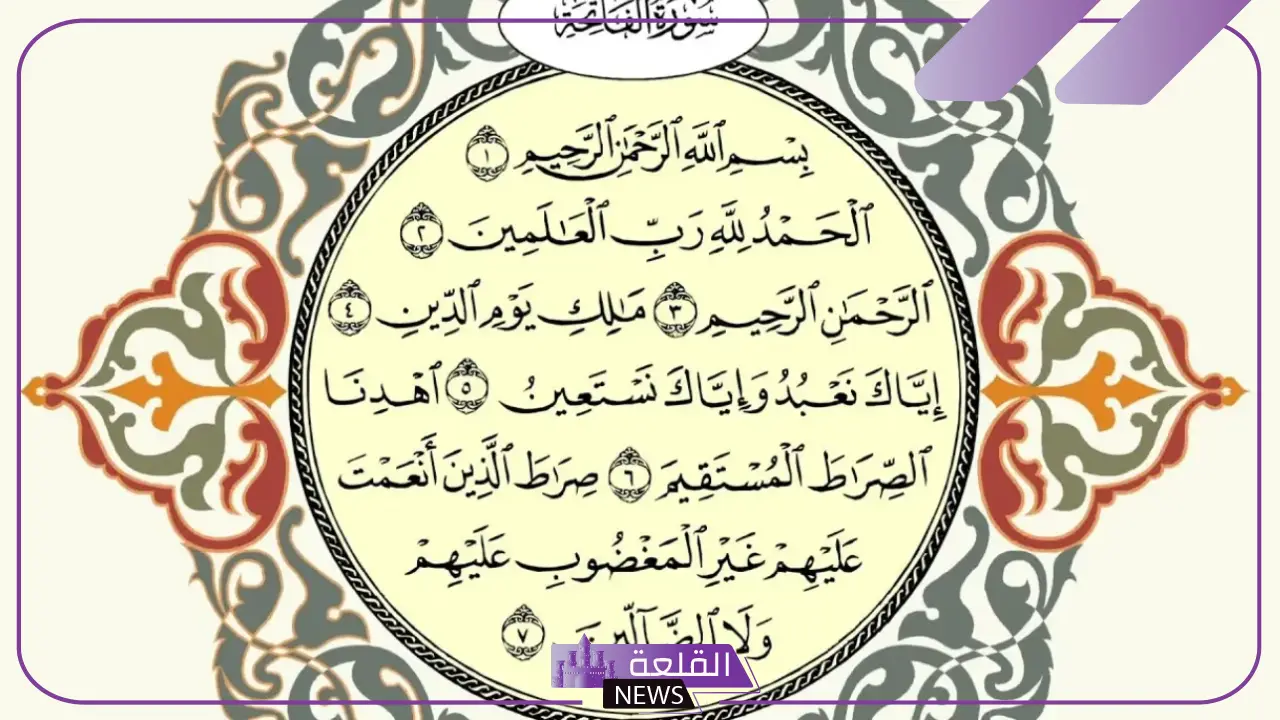 سُورَةُ الْفَاتِحَةِ
بِسْمِ ٱللَّهِ ٱلرَّحْمَٰنِ ٱلرَّحِيمِ ١
ٱلْحَمْدُ لِلَّهِ رَبِّ ٱلْعَٰلَمِينَ ٢
ٱلرَّحْمَٰنِ ٱلرَّحِيمِ ٣ مَٰلِكِ يَوْمِ ٱلدِّينِ ٤
إِيَّاكَ نَعْبُدُ وَإِيَّاكَ نَسْتَعِينُ ٥ ٱهْدِنَا
ٱلصِّرَٰطَ ٱلْمُسْتَقِيمَ ٦ صِرَٰطَ ٱلَّذِينَ أَنْعَمْتَ
عَلَيْهِمْ غَيْرِ ٱلْمَغْضُوبِ عَلَيْهِمْ
وَلَا ٱلضَّآلِّينَ ٧
القلعة
NEWS